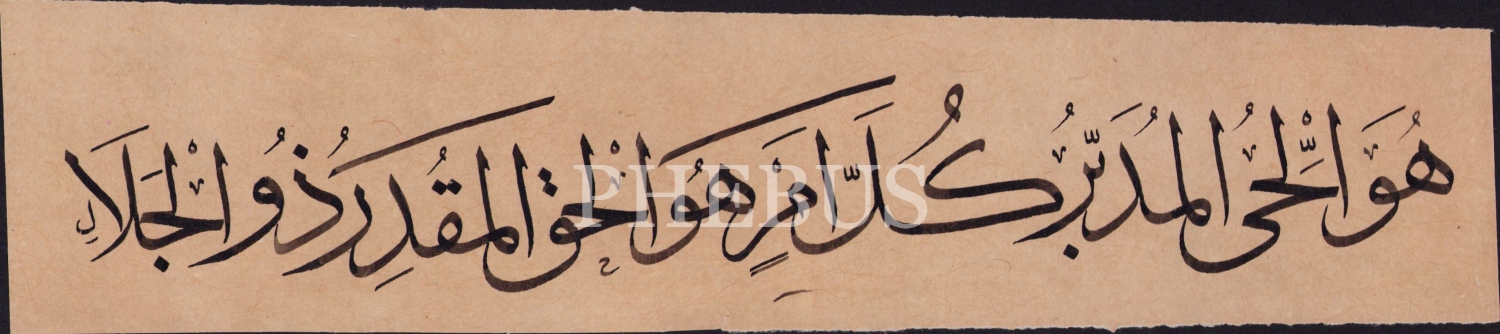 هُوَ الْحَىُّ الْمُدَبِّرُ كُلَّ اَمْرٍ هُوَ الْحَقُّ الْمُقَدِرُ ذُو الْجَلَالِ
PHEBUS